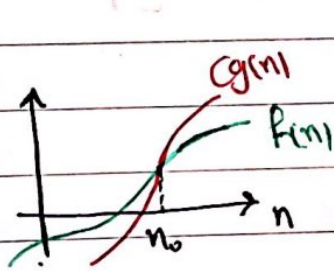 Cg(n)
f(n)
n
n₀